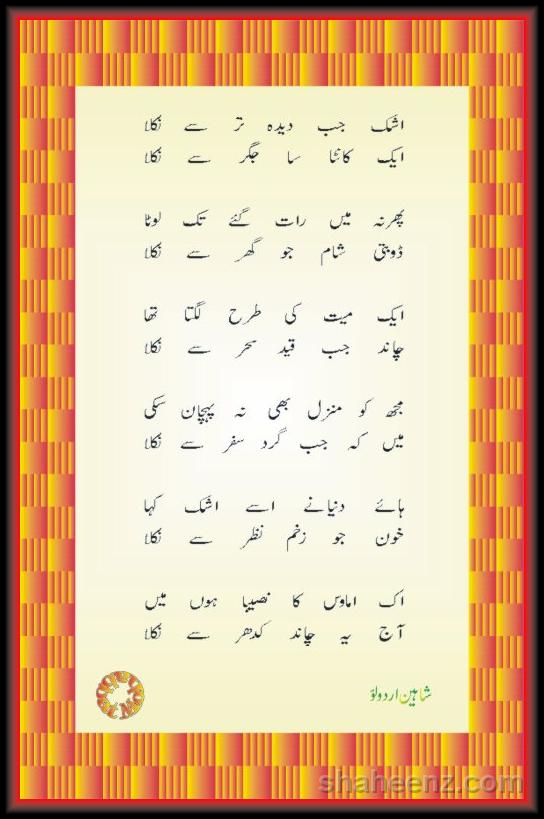 اشک جب دیدہ تر سے نکلا
ایک کانٹا سا جگر سے نکلا
پھرنہ میں رات گئے تک لوٹا
ڈوبتی شام جو گھر سے نکلا
ایک میت کی طرح لگتا تھا
چاند جب قید سحر سے نکلا
مجھ کو منزل بھی نہ پہچان سکی
میں کہ جب گرد سفر سے نکلا
ہائے دنیانے اسے اشک کہا
خون جو زخم نظر سے نکلا
اک اماوس کا نصیبا ہوں میں
آج یہ چاند کدھر سے نکلا
شاہین اردولؤ
shaheenz.com